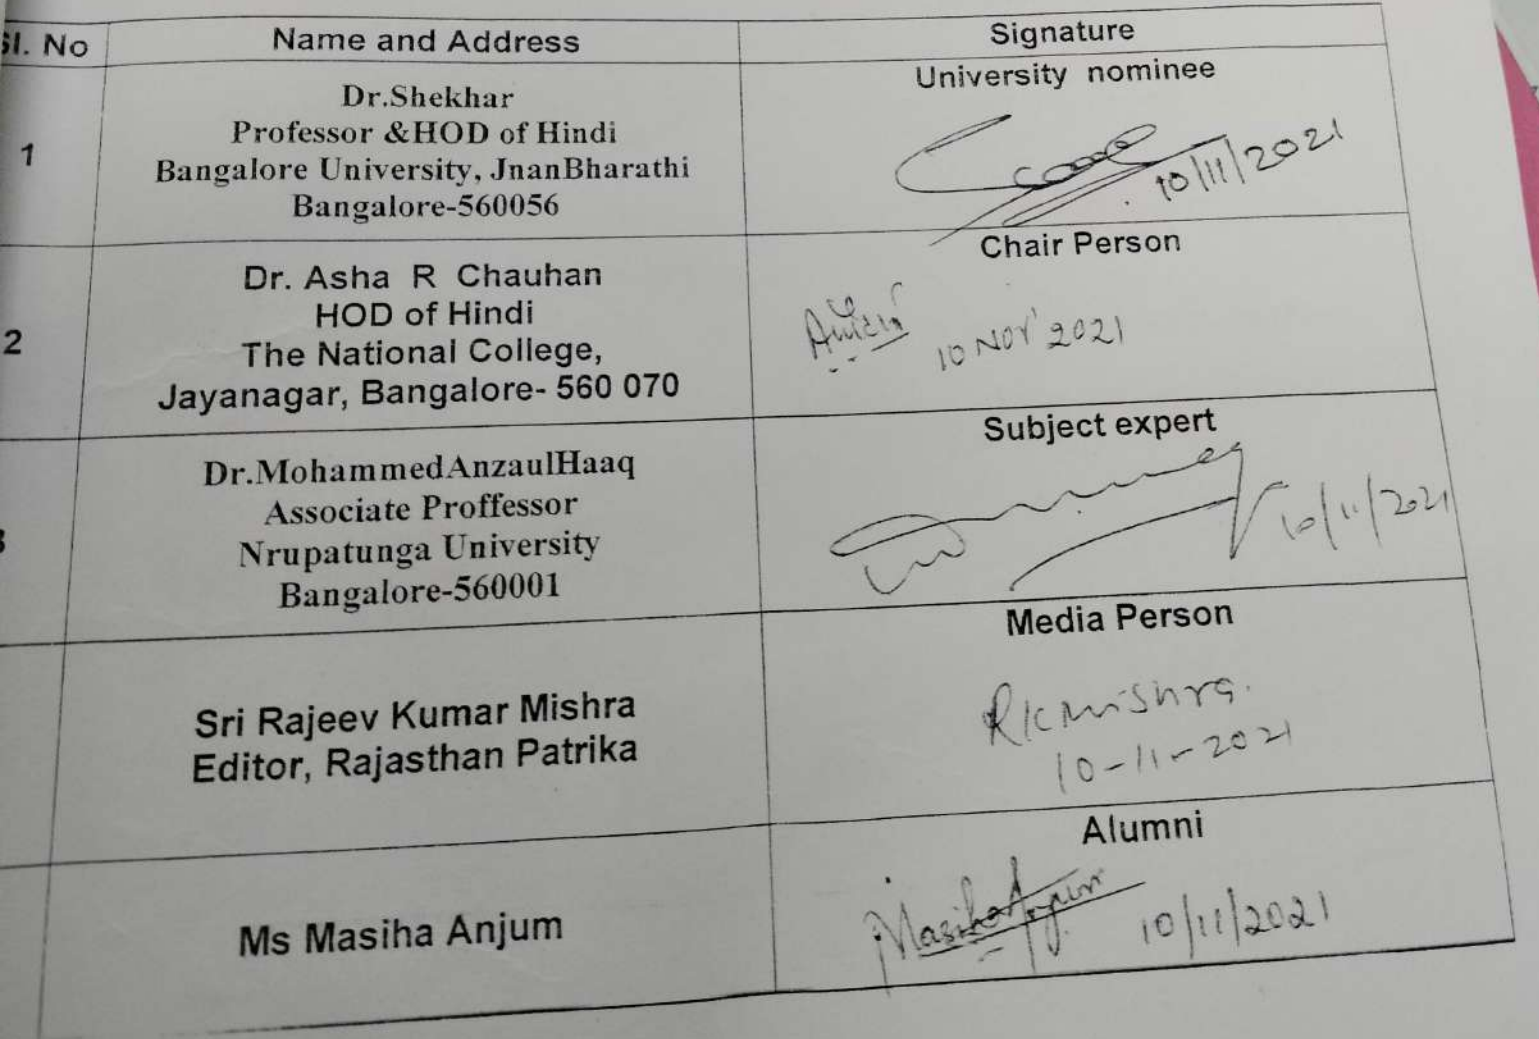 Sl. No
Name and Address
Signature
1
Dr.Shekhar
Professor &HOD of Hindi
Bangalore University, JnanBharathi
Bangalore-560056
University nominee
10/11/2021
2
Dr. Asha R Chauhan
HOD of Hindi
The National College,
Jayanagar, Bangalore- 560 070
Chair Person
10 Nov' 2021
3
Dr.MohammedAnzaulHaaq
Associate Proffessor
Nrupatunga University
Bangalore-560001
Subject expert
10/11/2021
Sri Rajeev Kumar Mishra
Editor, Rajasthan Patrika
Media Person
RKMishra.
10-11-2021
Ms Masiha Anjum
Alumni
Masiha Anjum
10/11/2021